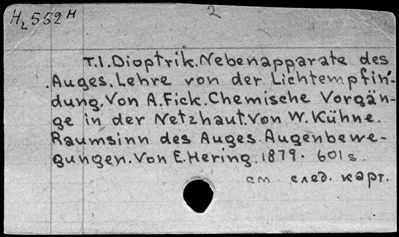 H₂552ᴴ 2
Т.I. Dioptrik. Nebenapparate des
Auges. Lehre von der Lichtempfin-
dung. Von A. Fick. Chemische Vorgän-
ge in der Netzhaut. Von W. Kühne.
Raumsinn des Auges. Augenbewe-
gungen. Von E. Hering. 1879. 601 s.
см. след. карт.